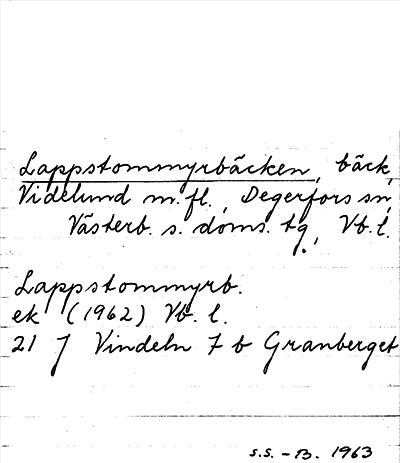 Lappstommyrbäcken, bäck,
Videlund m.fl., Degerfors sn,
Västerb. s. doms. tg., Vb. l.
Lappstommyrb.
ek (1962) Vb. l.
21 J Vindeln 7 b Granberget
s.s. - B. 1963